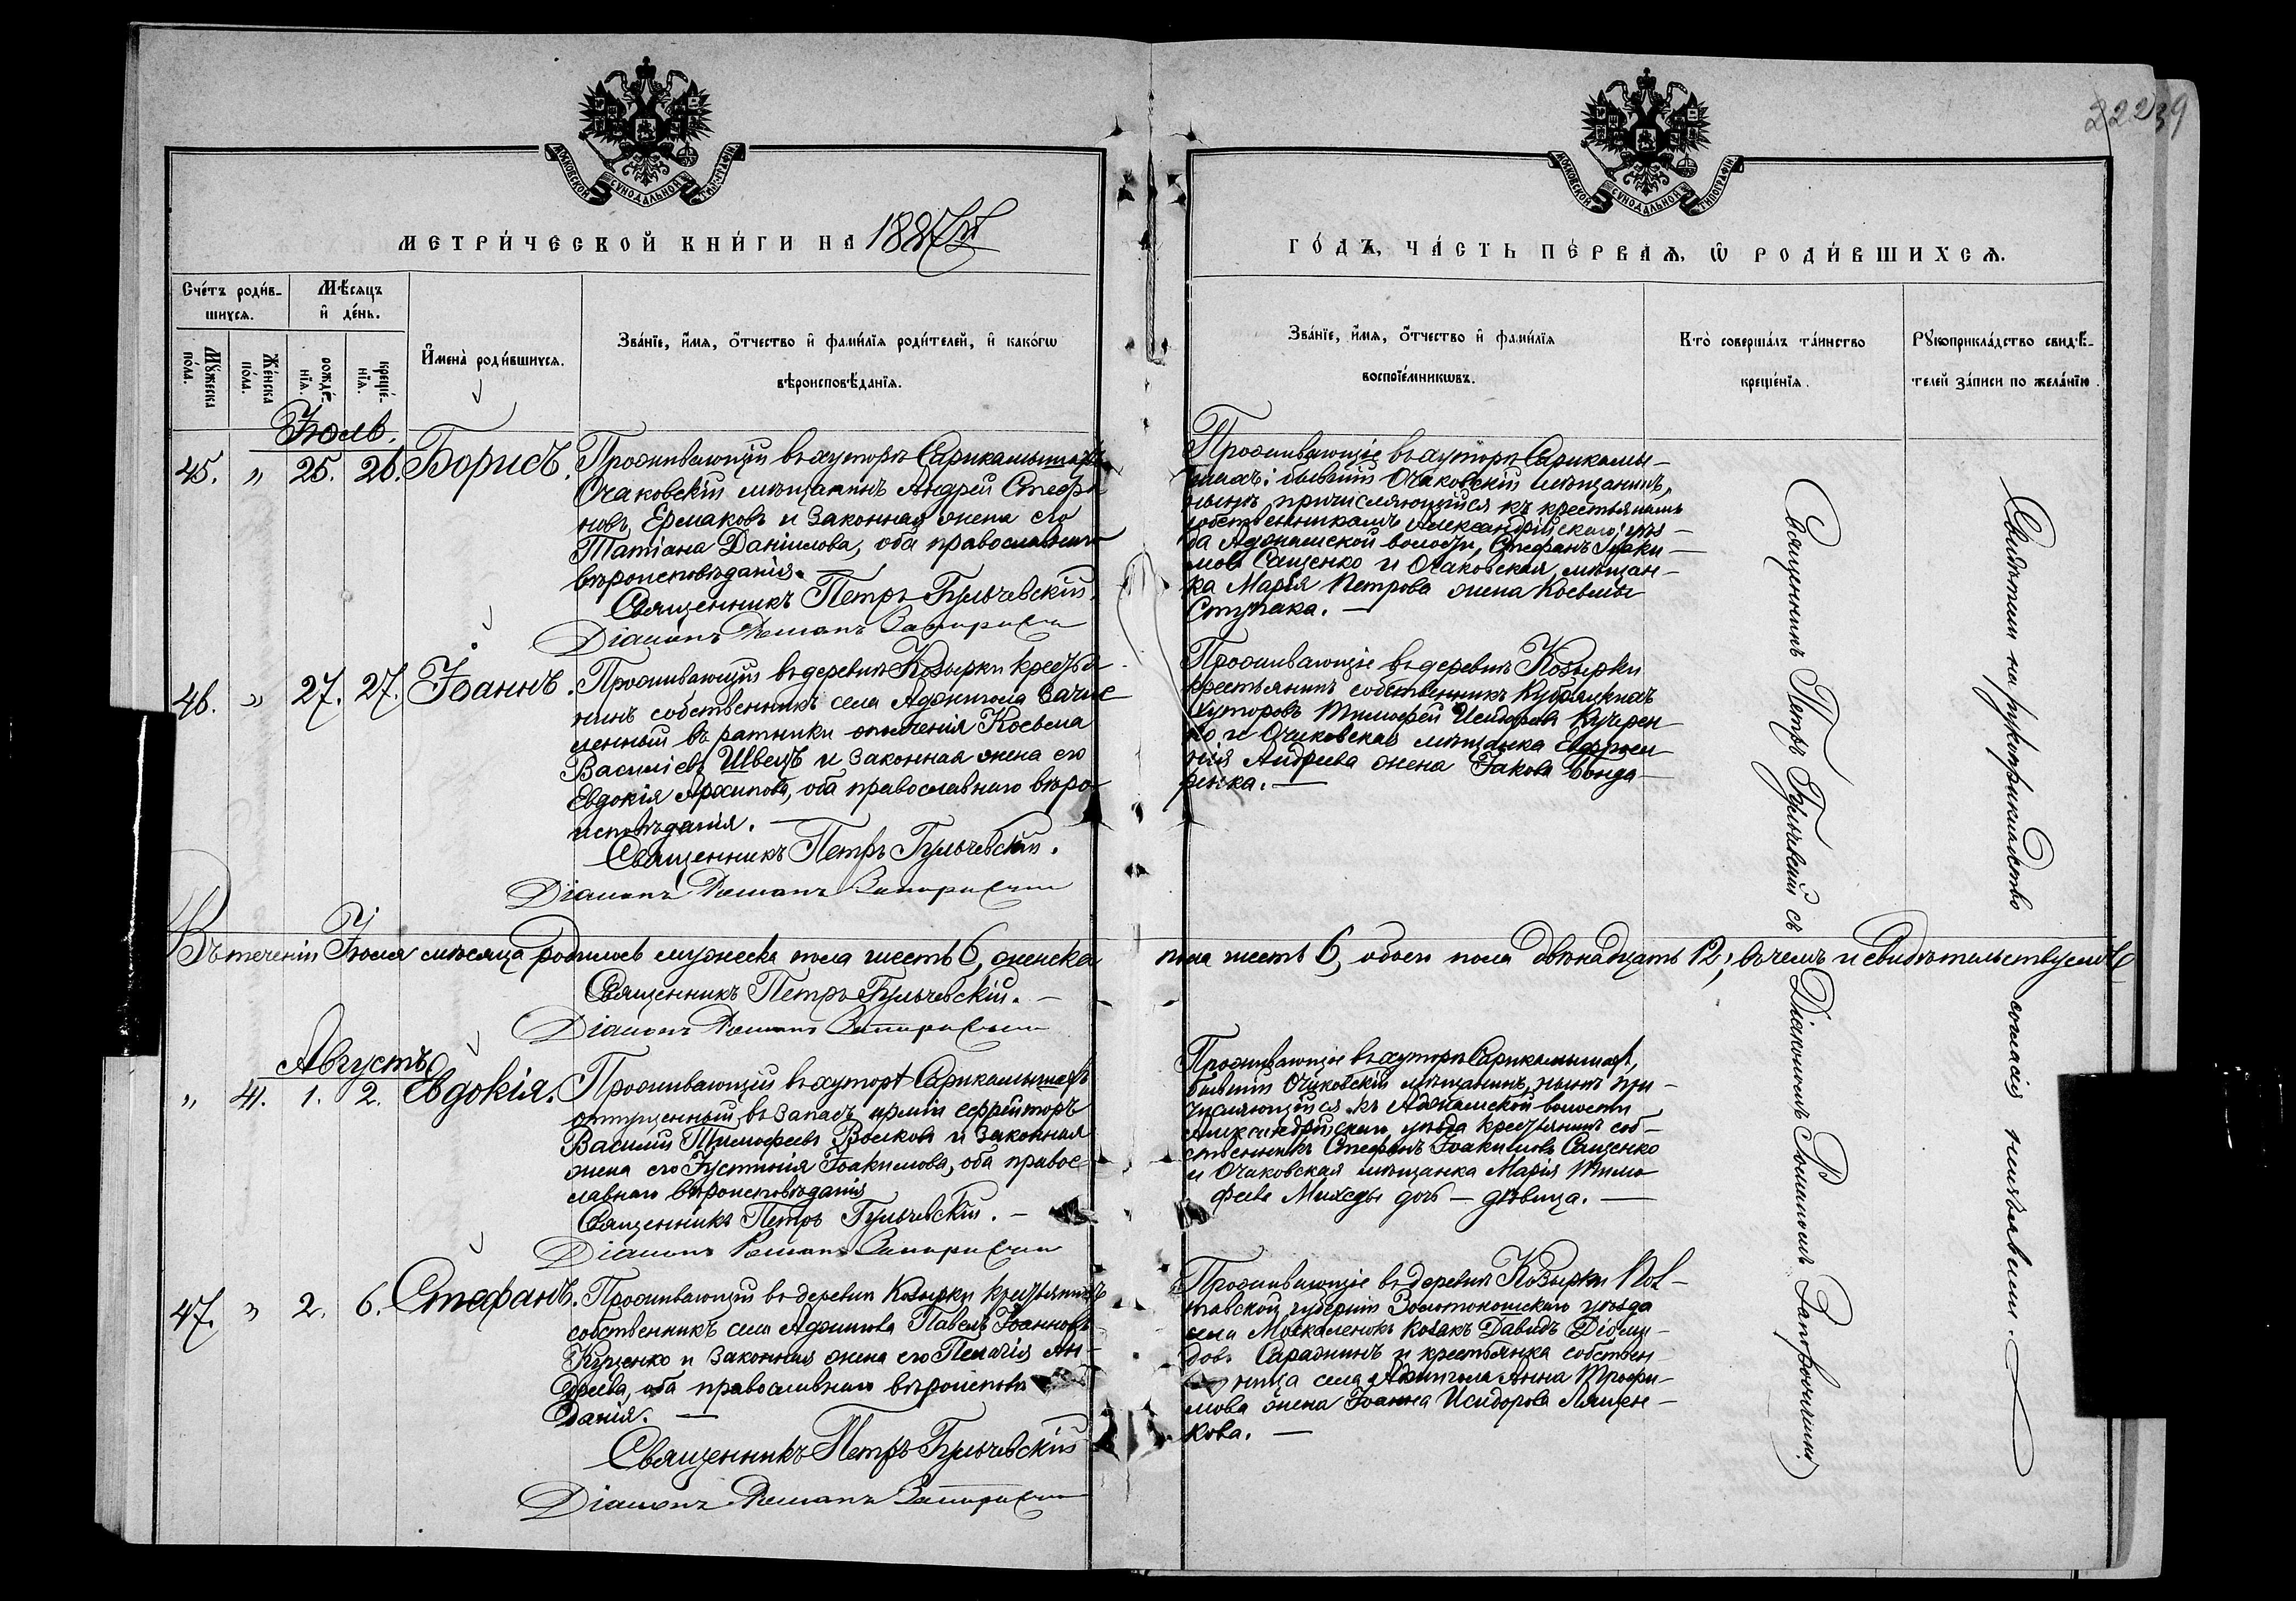 22239
МОСКОВСКОЙ СѴНОДАЛЬНОЙ ТИПОГРАФІИ
МОСКОВСКОЙ СѴНОДАЛЬНОЙ ТИПОГРАФІИ
МЕТРИ́ЧЕСКОЙ КНИ́ГИ НА 1887й
ГО́ДЪ, ЧА́СТЬ ПЕ́РВАѦ, Ѡ҆ РОДИ́ВШИХСѦ.
Сче́тъ роди́в-
шихсѧ.
Мѣ́сѧцъ
и҆ де́нь.
Мꙋ́жеска
по́ла.
Же́нска
по́ла.
рожде́-
нїѧ.
креще́-
нїѧ.
И҆мена̀ роди́вшихсѧ.
Зва́нїе, и҆́мѧ, ѻ҆́тчество и҆ фами́лїѧ роди́телей, и҆ како́гѡ
вѣроисповѣ́данїѧ.
Зва́нїе, и҆́мѧ, ѻ҆́тчество и҆ фами́лїѧ
воспрїе́мникѡвъ.
Кто̀ соверша́лъ та́инство
креще́нїѧ.
Рꙋкоприкла́дство свидѣ́-
телей за́писи по жела́нїю.
Іюль.
45. „ 25. 26. Борисъ.
Проживающій въ хуторѣ Сарикамышахъ
Очаковскій мѣщанинъ Андрей Стефа
новъ Ермаковъ и законная жена его
Татіана Даніилова, оба православнаго
вѣроисповѣданія.
Священникъ Петръ Гульчевскій.
Діаконъ Романъ
Проживающіе въ хуторѣ Сарикамы-
шахъ: бывшій Очаковскій мѣщанинъ,
нынѣ причисляющійся къ крестьянамъ
собственникамъ Александрійскаго уѣз-
да Аджамской волости, Стефанъ Іоаки-
мовъ Сащенко и Очаковская мѣщан-
ка Марія Петрова жена Косьмы
Ступака. —
46. „ 27. 27. Іоаннъ.
Проживающій въ деревнѣ Козырки крестья
нинъ собственникъ села Аджигола зачис
ленный въ ратники ополченія Косьма
Василіевъ Швецъ и законная жена его
Евдокія Архипова, оба православнаго вѣро
исповѣданія. —
Священникъ Петръ Гульчевскій.
Діаконъ Романъ
Проживающіе въ деревнѣ Козырки
крестьянинъ собственникъ Кубряцкихъ
хуторовъ Тимофей Исидоровъ Кучерен-
ко и Очаковская мѣщанка Евфроси-
нія Андреева жена Іакова Бонда-
ренка. —
Въ теченіи Іюля мѣсяца родилось мужеска пола шесть 6, женска
пола шесть 6, обоего пола двѣнадцать 12; въ чемъ и свидѣтельствуемъ
Священникъ Петръ Гульчевскій. —
Діаконъ Романъ
Августъ
„ 41. 1. 2. Евдокія.
Проживающій въ хуторѣ Сарикамышахъ
отпущенный въ запасъ арміи ефрейторъ
Василій Тимофеевъ Волковъ и законная
жена его Іустинія Іоакимова, оба правос-
лавнаго вѣроисповѣданія
Священникъ Петръ Гульчевскій. —
Діаконъ Романъ
Проживающіе въ хуторѣ Сарикамышахъ,
бывшій Очаковскій мѣщанинъ, нынѣ при-
числяющійся къ Аджамской волости
Александрійскаго уѣзда крестьянинъ соб-
ственникъ Стефанъ Іоакимовъ Сащенко
и Очаковская мѣщанка Марія Тимо
феева дочь — дѣвица. —
47. „ 2. 6. Стефанъ.
Проживающій въ деревнѣ Козырки крестьянинъ
собственникъ села Аджигола Павелъ Іоанновъ
Куценко и законная жена его Пелагія Ан-
дреева, оба православнаго вѣроисповѣ
данія. —
Священникъ Петръ Гульчевскій
Діаконъ Романъ
Проживающіе въ деревнѣ Козырки Пол-
тавской губерніи Золотоношскаго уѣзда
села Москаленокъ козакъ Давидъ Діоми-
довъ и крестьянка собствен-
ница села Аджигола Анна Трофи-
мова жена Іоанна Исидорова Лящен-
кова. —
Священникъ Петръ Гульчевскій съ Діакономъ Романомъ
Свидѣтели на рукоприкладство согласія неизъявили.